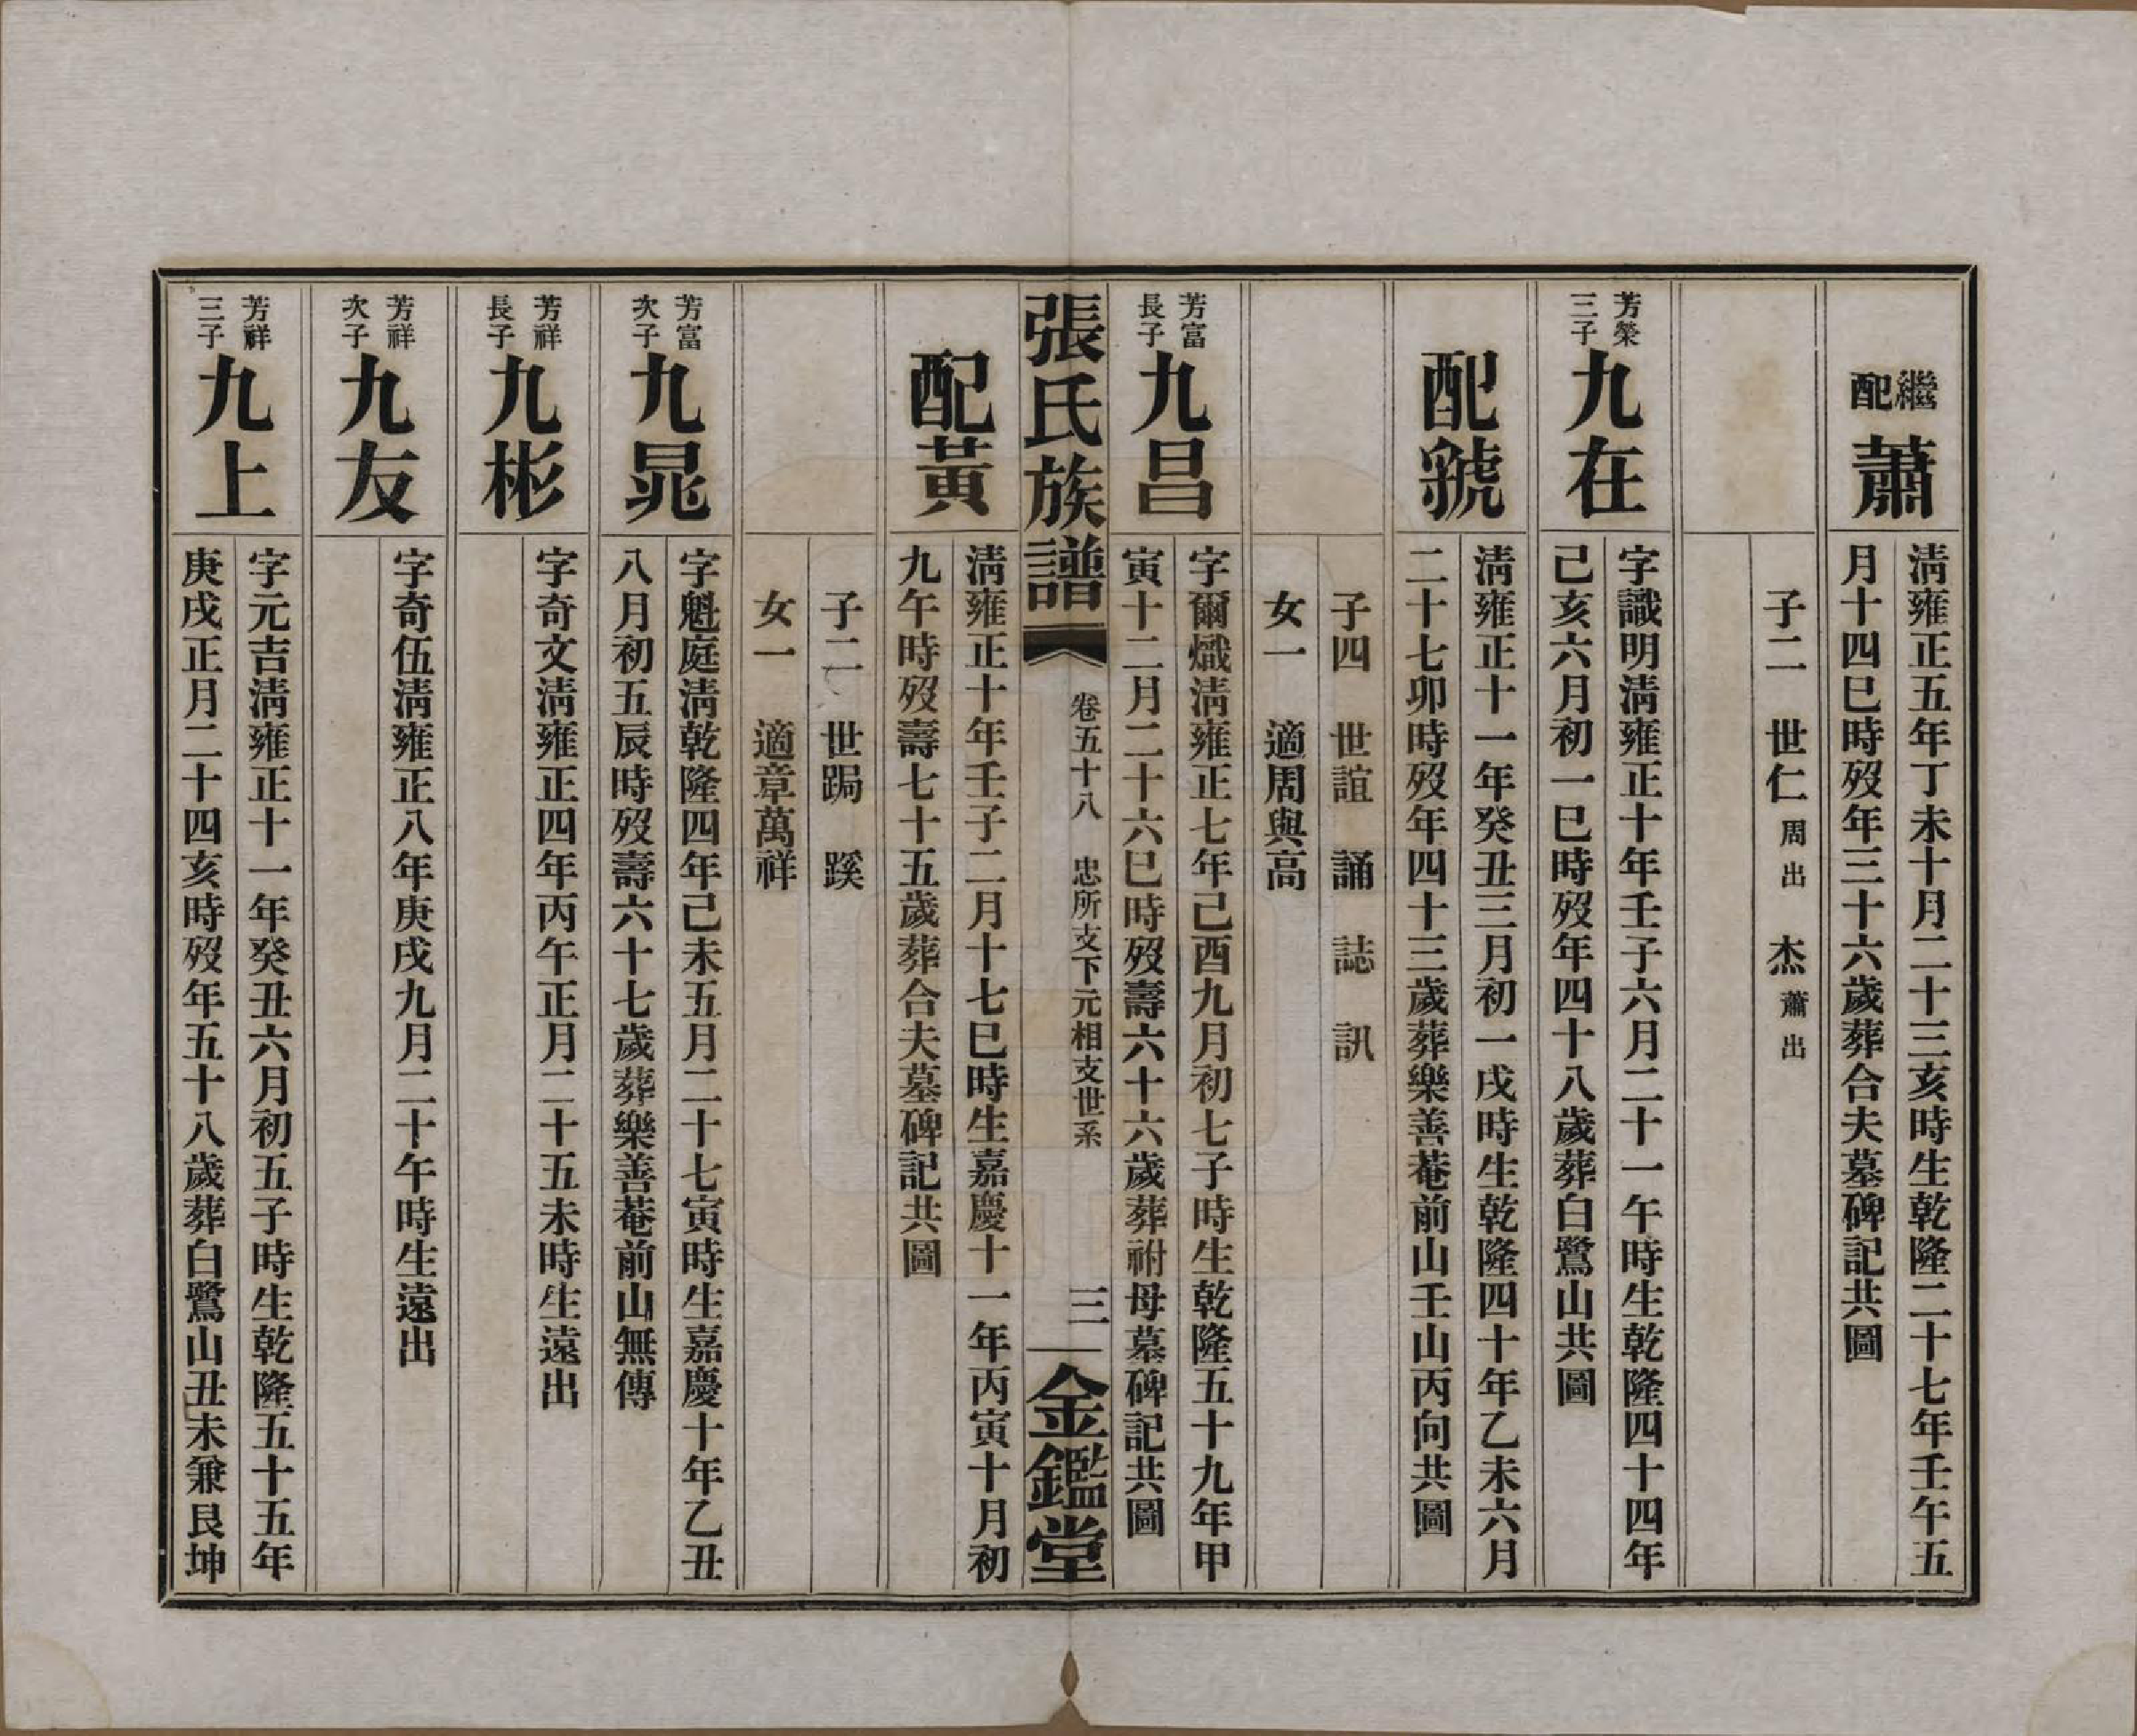 繼配 蕭
清雍正五年丁未十月二十三亥時生乾隆二十七年壬午五
月十四巳時歿年三十六歲葬合夫墓碑記共圖
子二 世仁周出 杰蕭出
芳榮三子 九在
字識明清雍正十年壬子六月二十一午時生乾隆四十四年
己亥六月初一巳時歿年四十八歲葬白鷺山共圖
配虢
清雍正十一年癸丑三月初一戌時生乾隆四十年乙未六月
二十七卯時歿年四十三歲葬樂善菴前山壬山丙向共圖
子四 世誼 誦 誌 訊
女一 適周與高
芳富長子 九昌
字爾熾清雍正七年己酉九月初七子時生乾隆五十九年甲
寅十二月二十六巳時歿壽六十六歲葬祔母墓碑記共圖
張氏族譜 卷五十八 忠所支下元相支世系 三 金鑑堂
配黃
清雍正十年壬子二月十七巳時生嘉慶十一年丙寅十月初
九午時歿壽七十五歲葬合夫墓碑記共圖
子二 世跼 蹊
女一 適章萬祥
芳富次子 九晁
字魁庭清乾隆四年己未五月二十七寅時生嘉慶十年乙丑
八月初五辰時歿壽六十七歲葬樂善菴前山無傳
芳祥長子 九彬
字奇文清雍正四年丙午正月二十五未時生遠出
芳祥次子 九友
字奇伍清雍正八年庚戌九月二十午時生遠出
芳祥三子 九上
字元吉清雍正十一年癸丑六月初五子時生乾隆五十五年
庚戌正月二十四亥時歿年五十八歲葬白鷺山丑未兼艮坤